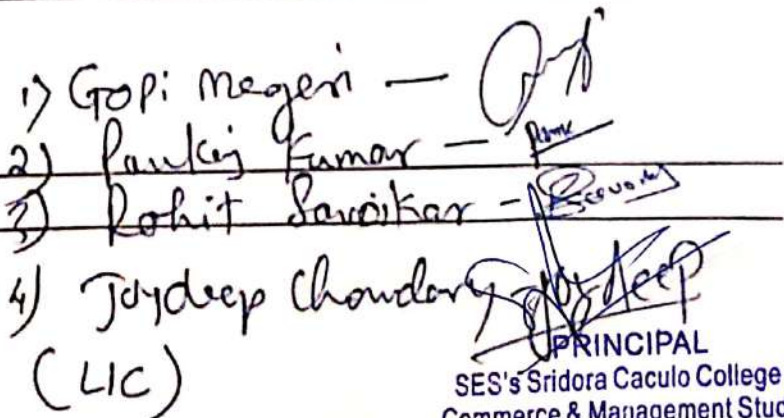 1) Gopi Megeri —
2) Pankaj Kumar —
3) Rohit Savoikar -
4) Joydeep Chowdary Joydeep
(LIC)
PRINCIPAL
SES's Sridora Caculo College
Commerce & Management Stud